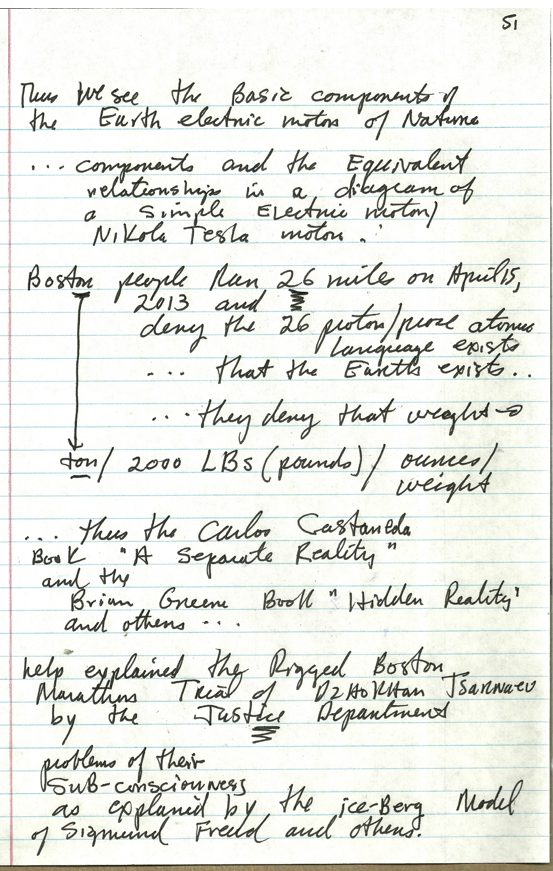 51
Thus We see the Basic components of
the Earth electric motor of Nature
... components and the Equivalent
relationships in a diagram of
a simple Electric motor/
Nikola Tesla motor.
Boston people Run 26 miles on April 15,
2013 and
deny the 26 proton/prose atomic
language exists
... that the Earth exists..
... they deny that weight→
ton/2000 LBs (pounds)/ounces/
weight
... thus the Carlos Castaneda
Book "A Separate Reality"
and the
Brian Greene Book "Hidden Reality"
and others ....
help explained the Rigged Boston
Marathon Trial of DZHOKHAR TSARNAEV
by the Justice Department
problems of their
SUB-consciousness
as explained by the ice-Berg Model
of Sigmund Freud and others.